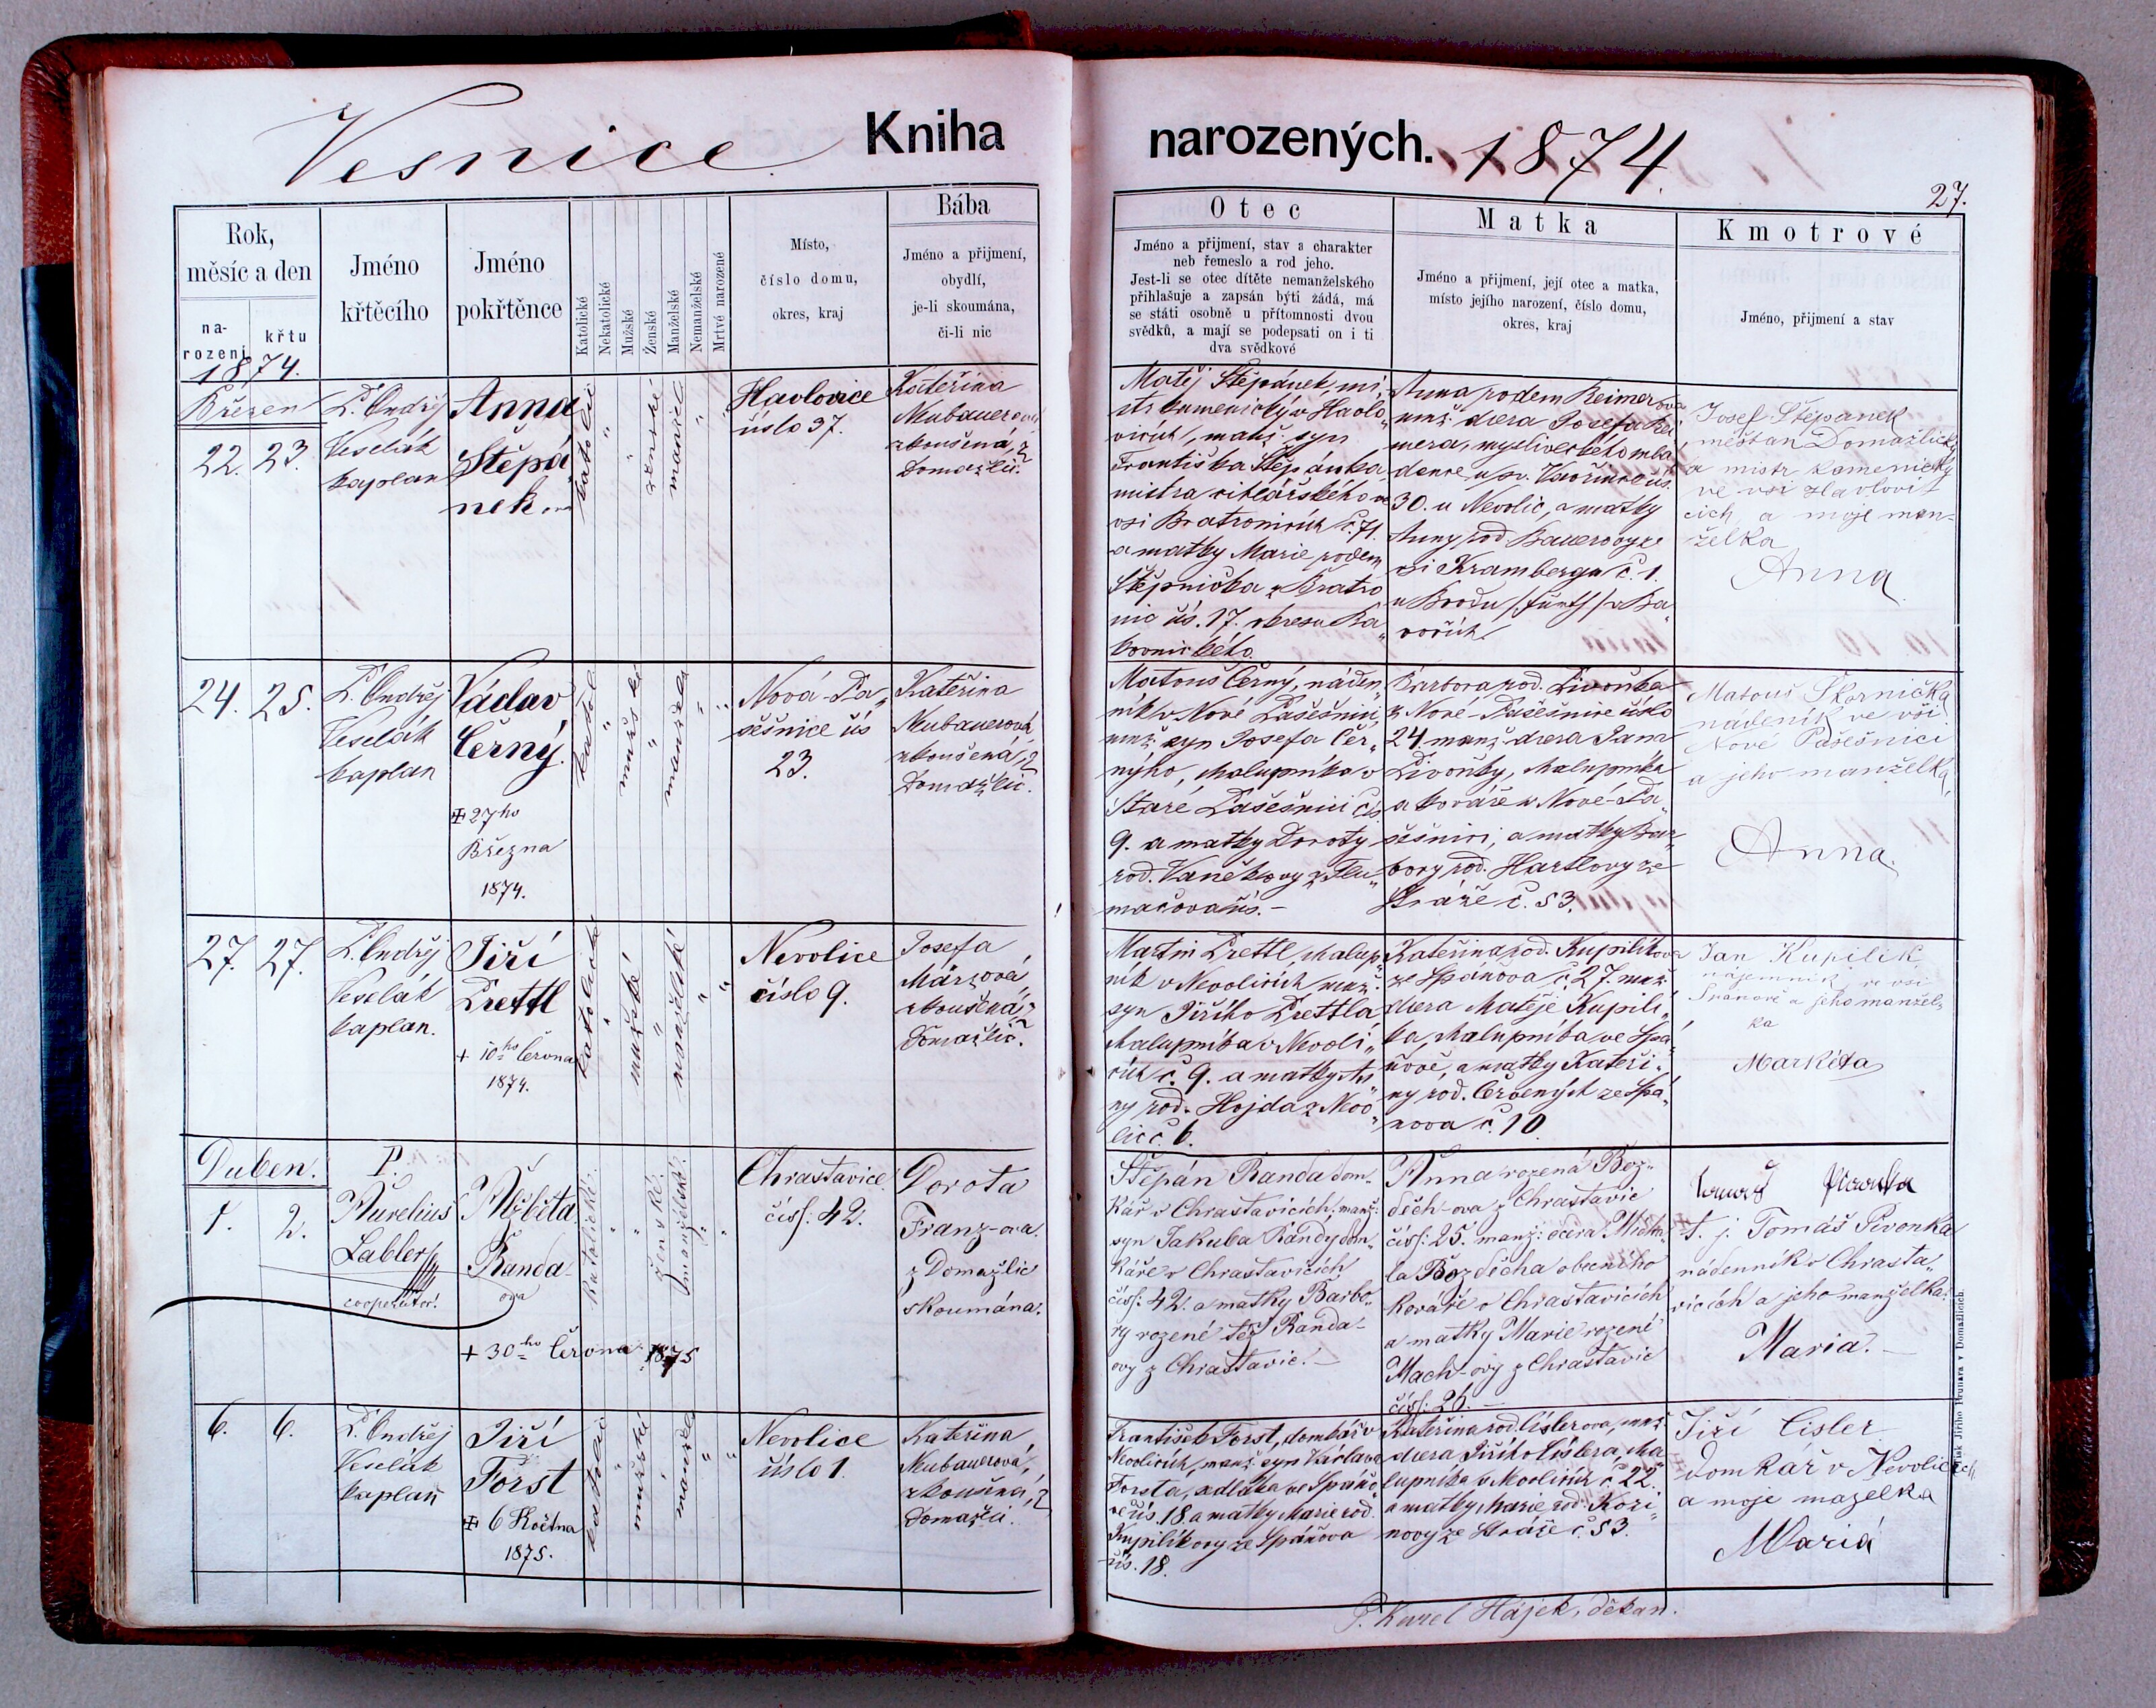 Vesnice Kniha
narozených. 1874.
27.
Rok,
měsíc a den
na-
rození
křtu
1874.
Jméno
křtěcího
Jméno
pokřtěnce
Katolické
Nekatolické
Mužské
Ženské
Manželské
Nemanželské
Mrtvé narozené
Místo,
číslo domu,
okres, kraj
Bába
Jméno a přijmení,
obydlí,
je-li skoumána,
či-li nic
Otec
Jméno a přijmení, stav a charakter
neb řemeslo a rod jeho.
Jest-li se otec dítěte nemanželského
přihlašuje a zapsán býti žádá, má
se státi osobně u přítomnosti dvou
svědků, a mají se podepsati on i ti
dva svědkové
Matka
Jméno a přijmení, její otec a matka,
místo jejího narození, číslo domu,
okres, kraj
Kmotrové
Jméno, přijmení a stav
Březen
22. 23.
P. Ondřej
Veselák
kaplan
Anna
Štěpá
nek
ženské
Havlovice
číslo 37.
Kateřina
Neubauerová
zkoušená, z
Domažlic.
Matěj Štěpánek, mi
str kamenický v Havlo
vicích, manž. syn
Františka Štěpánka
mistra
vsi Bratronicích č. 71.
a matky Marie rodem
Štěpnička z Bratro
nic čís. 17. okresu Ra
kovnického.
Anna rodem Reimerova
manž. dcera Josefa Rei
mera, mysliveckého mlá
dence u sv. Vavřince čís.
30. u Nevolic, a matky
Anny rod. Bauerovy ze
vsi Kramberga č. 1.
u Brodu /Furth/ v Ba
vořích.
Josef Štěpanek
měšťan Domažlický
a mistr kamenický
ve vsi Havlovi
cích a moje man-
želka
Anna
24. 25.
P. Ondřej
Veselák
kaplan
Václav
Černý.
27ho
Března
1874.
Nová-Pa
sěšnice čís
23.
Kateřina
Neubauerová
zkoušená, z
Domažlic.
Matouš Černý, náden
ník v Nové Pasěšnici,
manž. syn Josefa Čer
ného, chalupníka v
Staré Pasěšnici čís.
9. a matky Doroty
rod. Vaněkovy z Tlu
mačova čís. -
Barbora rod. Pivoňka
z Nové-Pasěšnice číslo
24. manž. dcera Jana
Pivoňky, chalupníka
a kováře v Nové-Pa
sěšnici, a matky Bar
bory rod. Hartlovy ze
Stráže č. 53.
Matouš Škornička
nádeník ve vsi
Nové Pasešnici
a jeho manželka
Anna.
27. 27.
P. Ondřej
Veselák
kaplan.
Jiří
Prettl
+ 10ho června
1874.
katolické
mužské
manželské
Nevolice
číslo 9.
Josefa
Márzová
zkoušená, z
Domažlic.
Martin Prettl, chalup
ník v Nevolicích manž.
syn Jiřího Prettla
chalupníka v Nevoli
cích č. 9. a matky An
ny rod. Hojda z Nevo
lic č. 6.
Kateřina rod. Kupilíkova
ze Spáňova č. 27. manž.
dcera Matěje Kupilí
ka, chalupníka ve Spá
ňově, a matky Kateři
ny rod. Červených ze Spá
ňova č. 10.
Jan Kupilík
nájemník ve vsi
Spanově a jeho manžel-
ka
Markéta
Duben.
1. 2.
P.
Aurelius
Labler
cooperátor.
Alžběta
Randa-
ova
+ 30ho června 1875
katolické.
ženské.
manželské.
Chrastavice
čísl: 42.
Dorota
Franz-ova.
z Domažlic
skoumána.
Štěpán Randa dom-
kář v Chrastavicích, manž:
syn Jakuba Randy dom-
káře v Chrastavicích
čísl: 42. a matky Barbo-
ry rozené též Randa-
ovy z Chrastavic. -
Anna rozená Boz-
děch-ova z Chrastavic
čísl: 25. manž: dcera Micha-
la Bozděcha obecního
kováře v Chrastavicích
a matky Marie rozené
Mach-ovy z Chrastavic
čísl: 26. -
t. j. Tomáš Pivonka
nádenník v Chrasta
vicích a jeho manželka.
Maria. -
6. 6.
P. Ondřej
Veselák
kaplan
Jiří
Forst
6 Května
1875.
mužské
Nevolice
číslo 1.
Kateřina
Neubauerová,
zkoušená, z
Domažlic.
František Forst, domkář v
Nevolicích, manž. syn Václava
Forsta, sedláka ve Spáňo
vě čís. 18. a matky Marie rod.
Kupilíkovy ze Spáňova
čís. 18.
Kateřina rod. Cislerova, manž.
dcera Jiřího Cislera, cha
lupníka v Nevolicích č. 22.
a matky Marie rod. Koři
novy ze Stráže č. 53.
Jiří Cisler
Domkář v Nevolicích
a moje mazelka
Mariá
P. Karel Hájek, děkan.
Tisk Jiřího Prunara v Domažlicích.